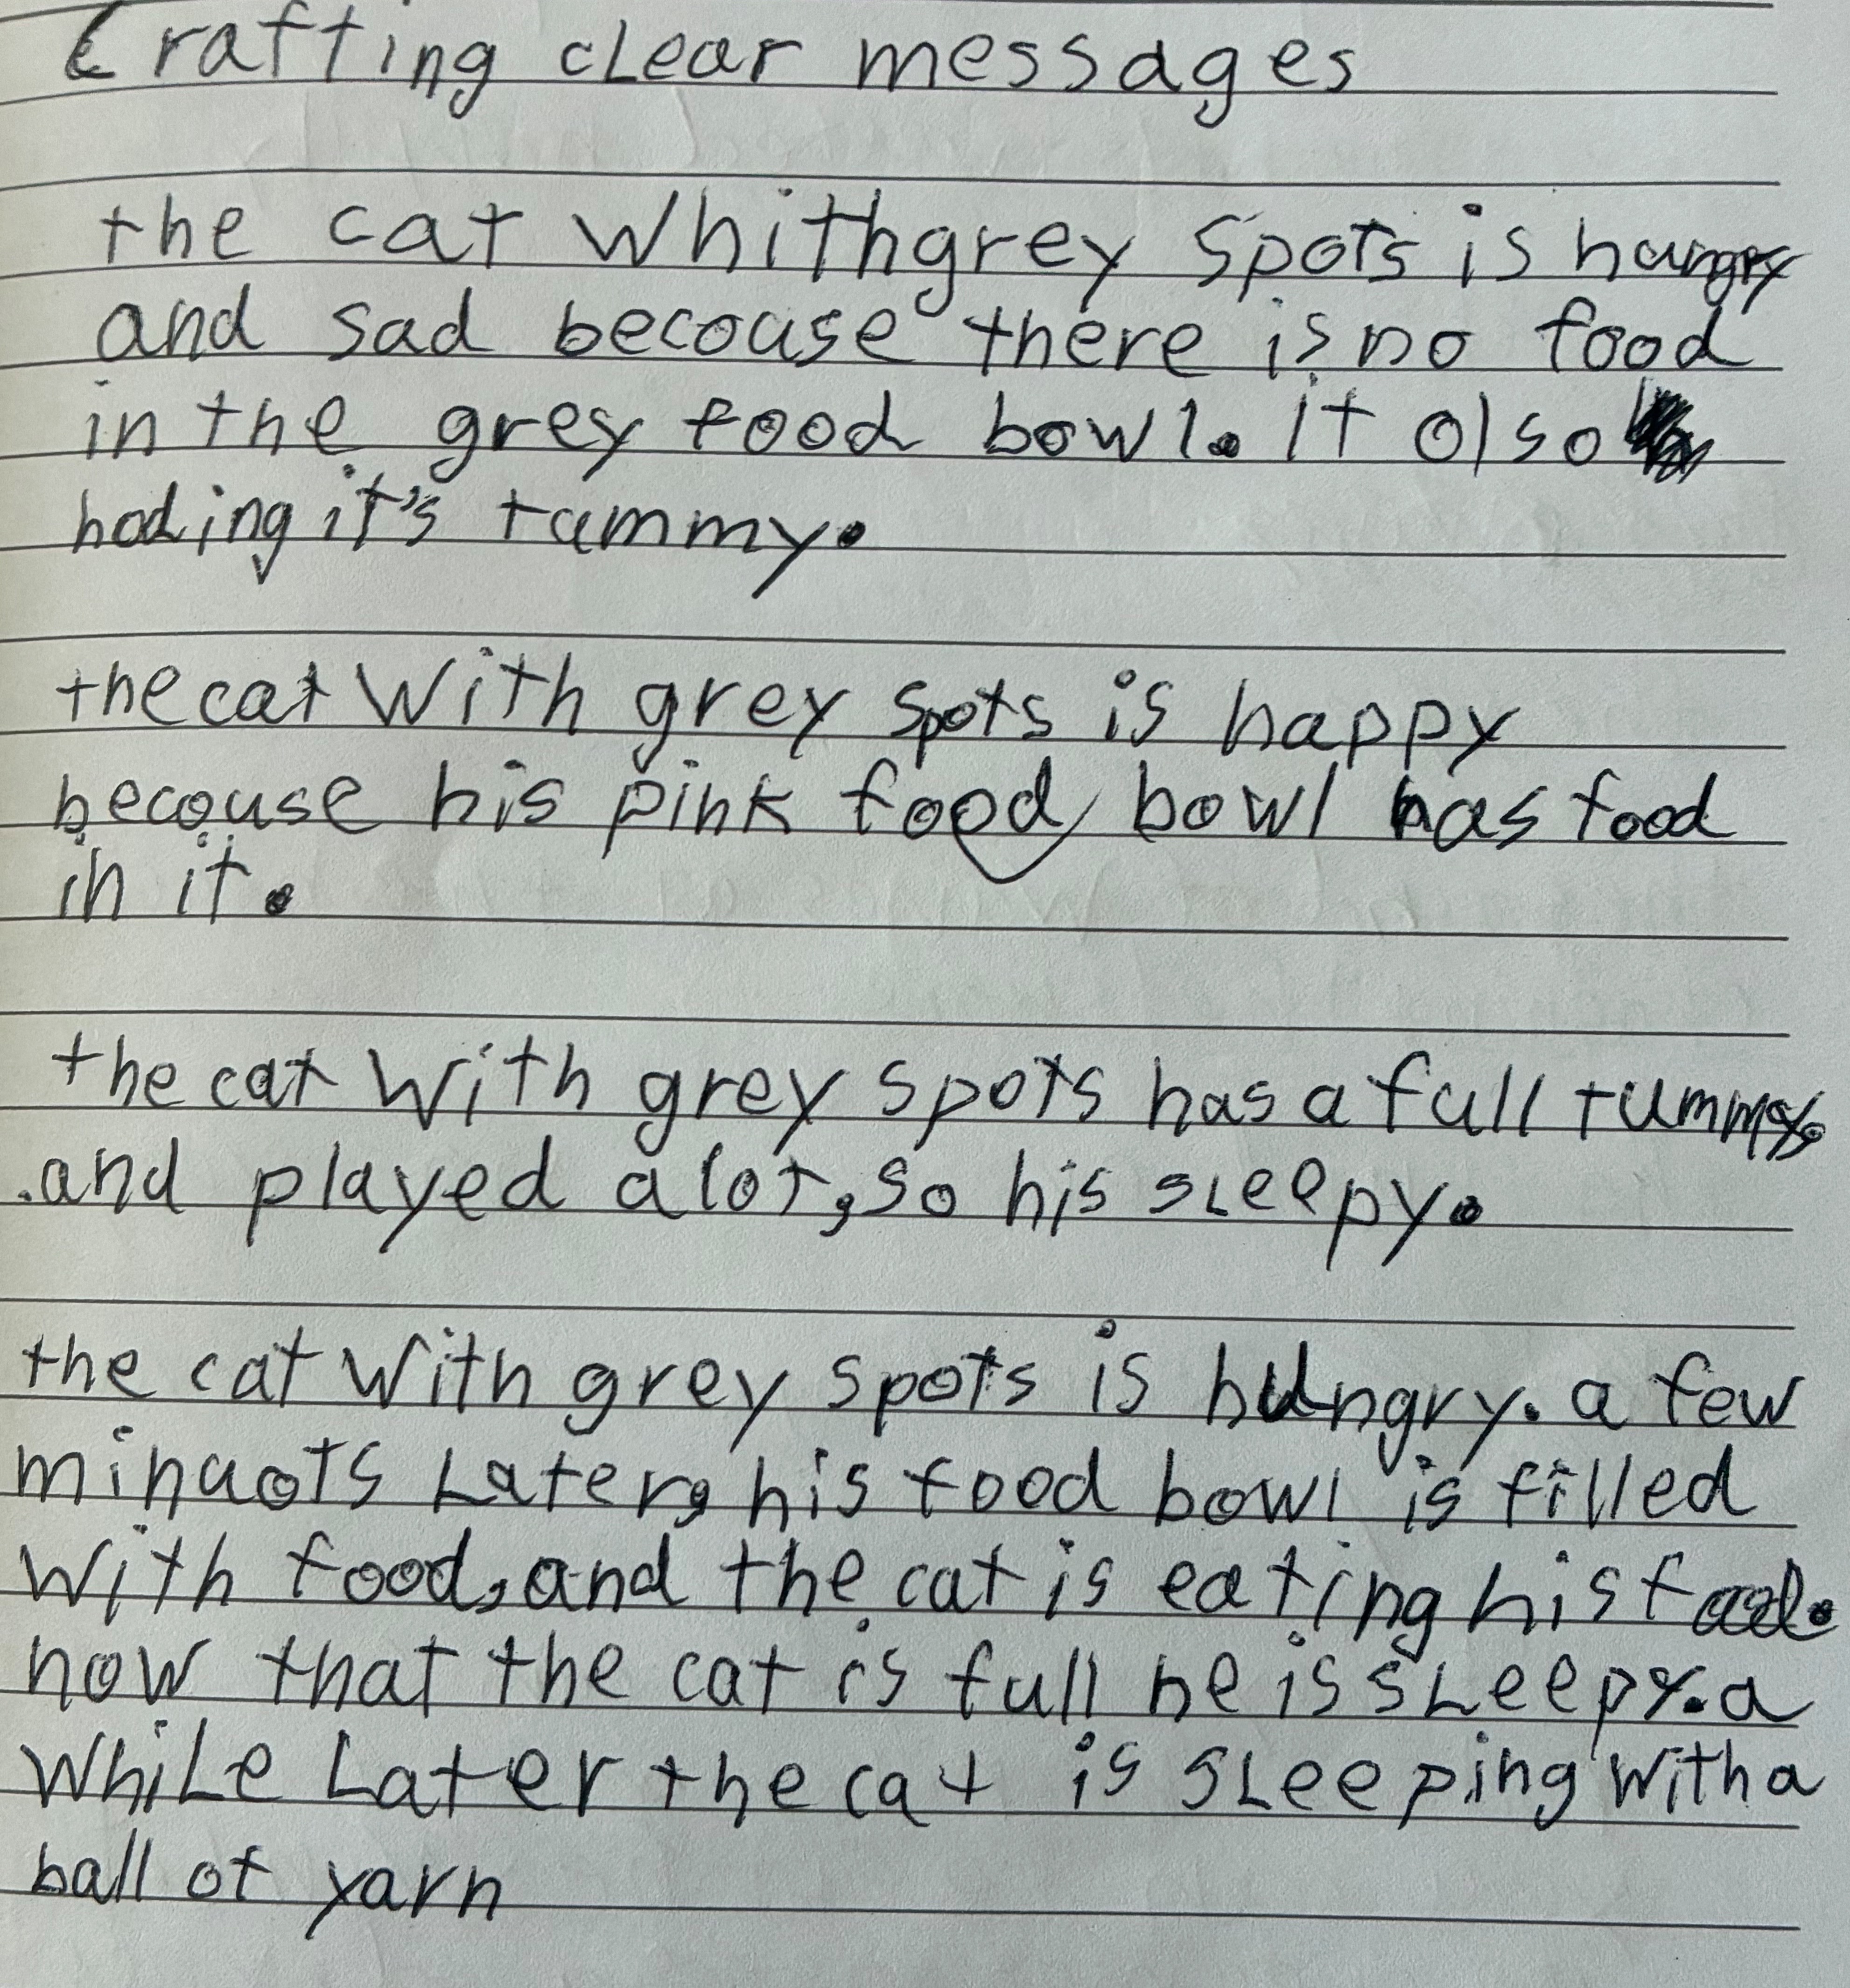 Crafting clear messages
the cat whith grey spots is hungry
and sad becouse there is no food
in the grey food bowl. it olso
hoding it's tummy.
the cat with grey spots is happy
becouse his pink food bowl has food
in it.
the cat with grey spots has a full tummy
and played a lot, so his sleepy.
the cat with grey spots is hungry. a few
minuots Later, his food bowl is filled
with food, and the cat is eating his food.
now that the cat is full he is sleepy. a
while Later the cat is sleeping with a
ball of yarn